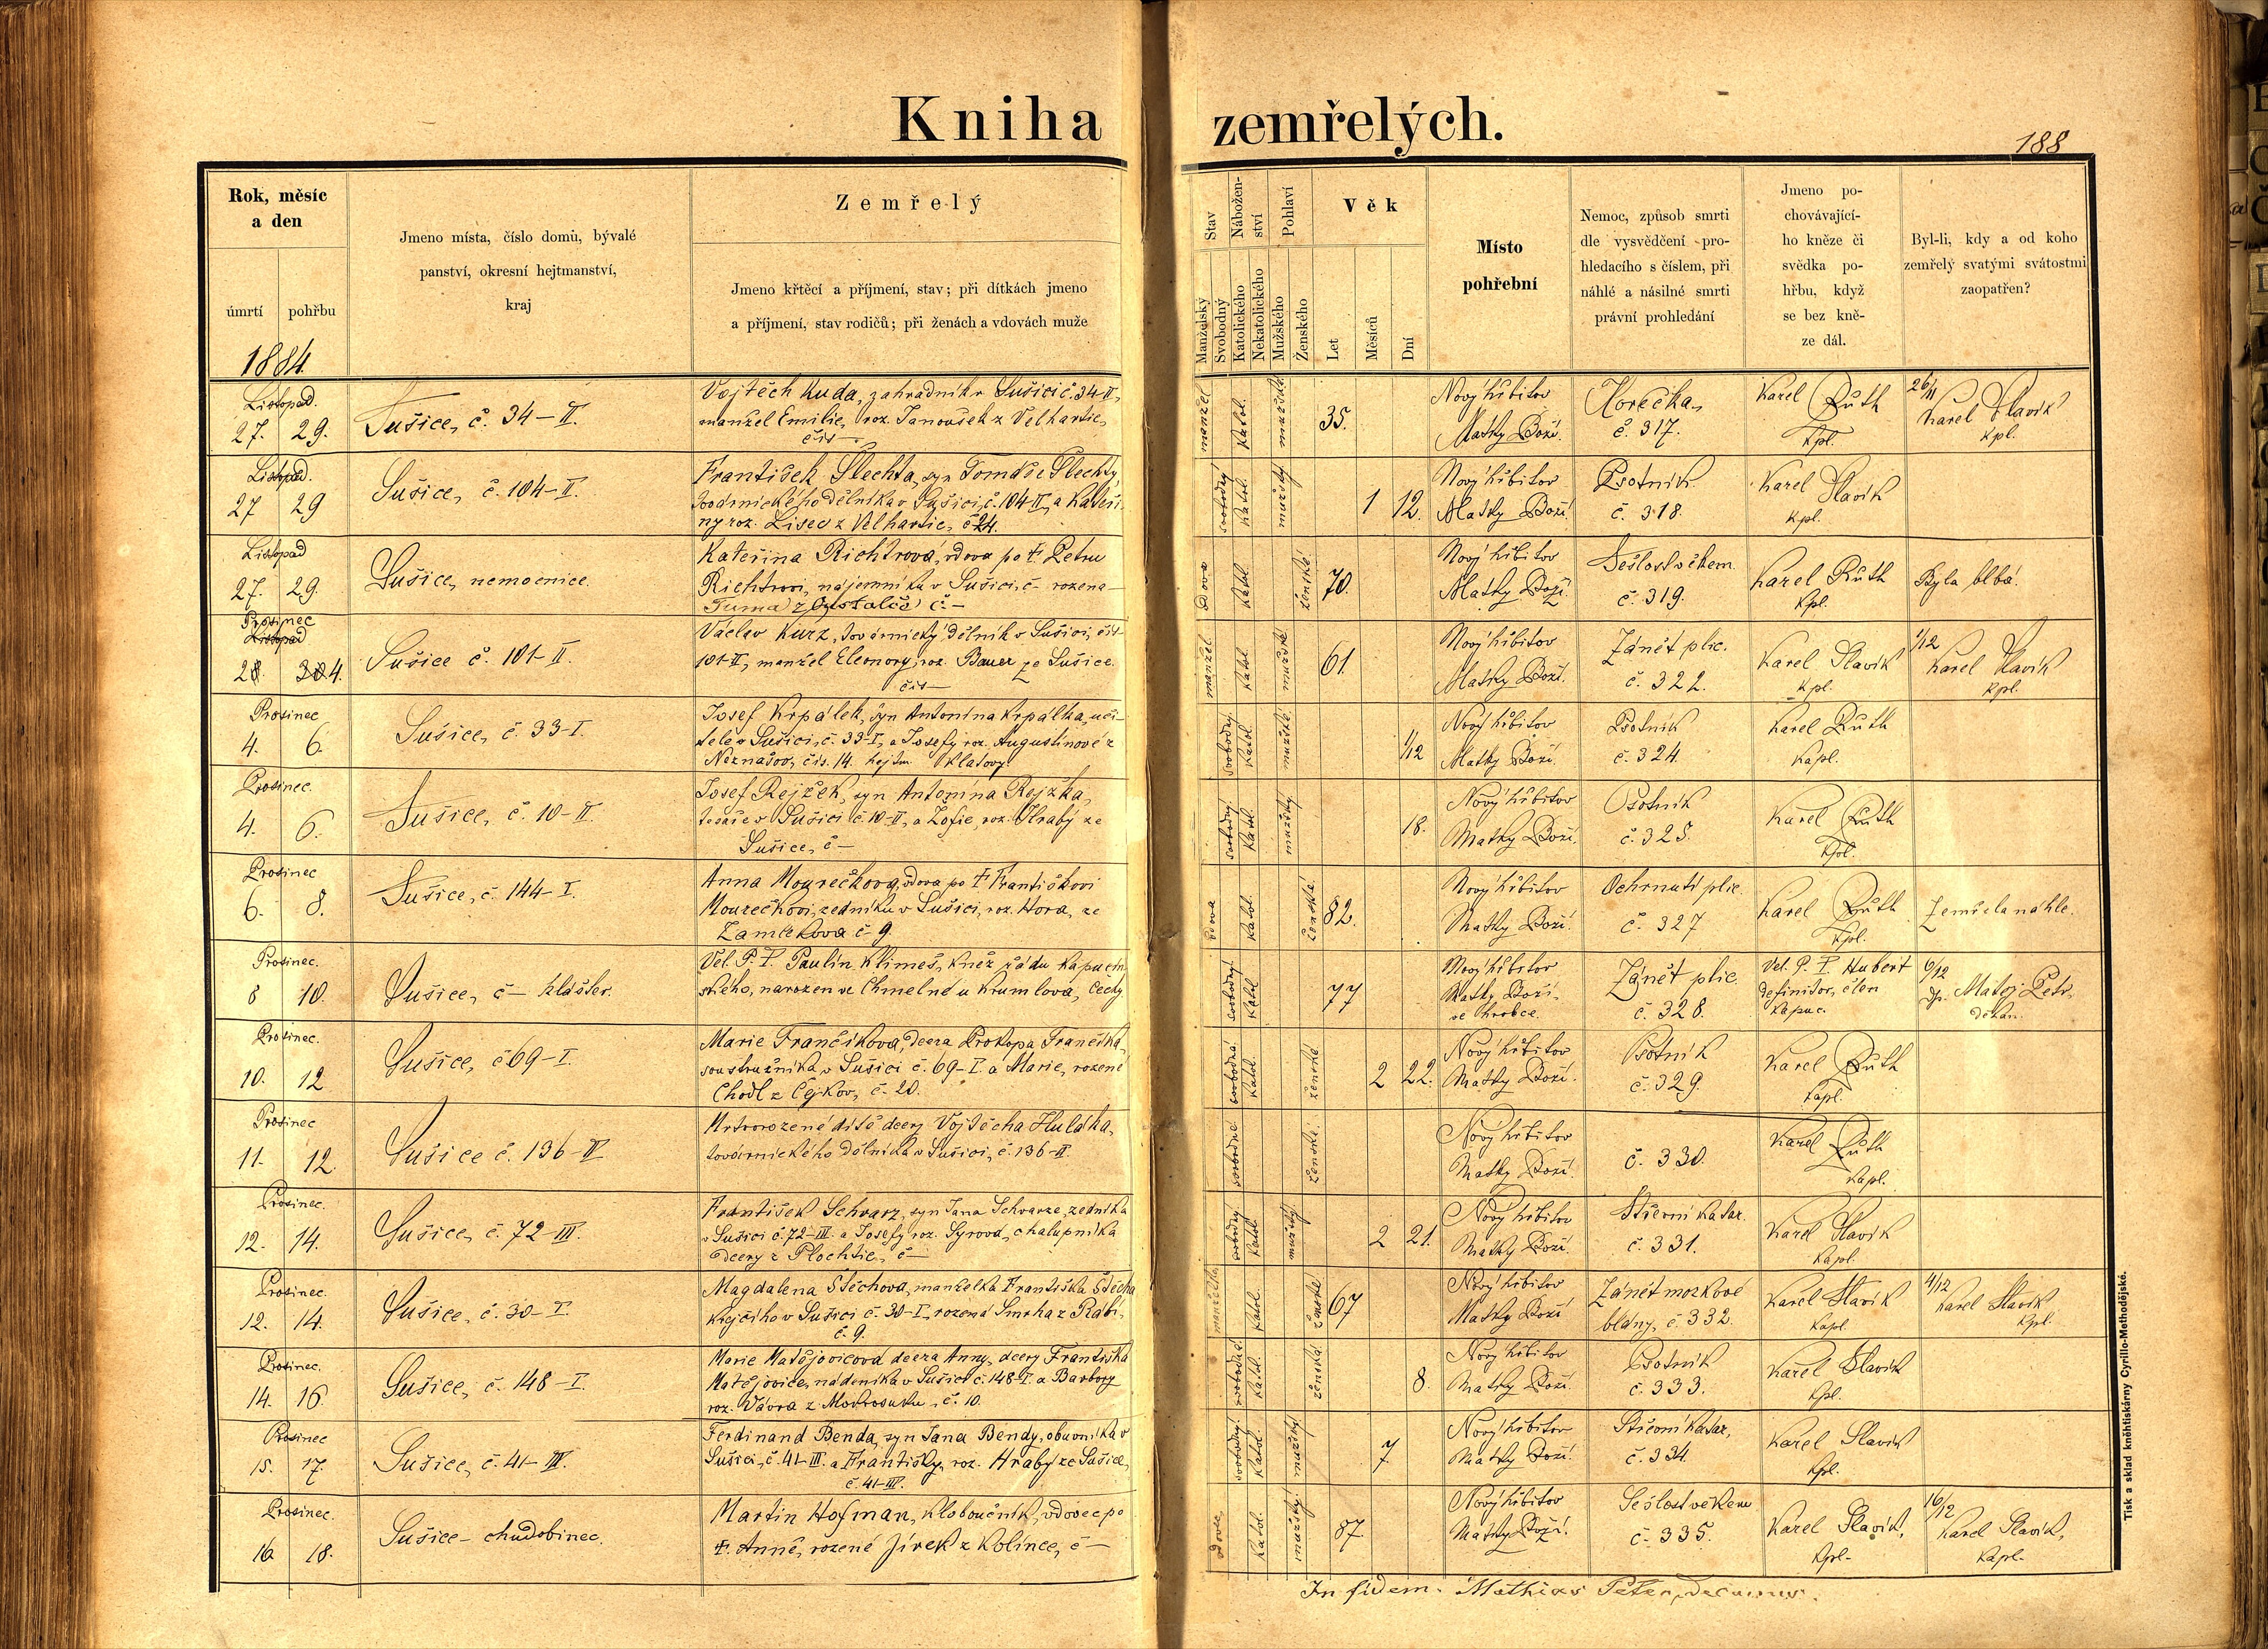 Kniha zemřelých.
188
Rok, měsíc
a den
úmrtí pohřbu
1884.
Jmeno místa, číslo domů, bývalé
panství, okresní hejtmanství,
kraj
Zemřelý
Jmeno křtěcí a příjmení, stav; při dítkách jmeno
a příjmení, stav rodičů; při ženách a vdovách muže
Stav
Manželský
Svobodný
Nábožen-
ství
Katolického
Nekatolického
Pohlaví
Mužského
Ženského
Věk
Let
Měsíců
Dní
Místo
pohřební
Nemoc, způsob smrti
dle vysvědčení pro-
hledacího s číslem, při
náhlé a násilné smrti
právní prohledání
Jmeno po-
chovávající-
ho kněze či
svědka po-
hřbu, když
se bez kně-
ze dál.
Byl-li, kdy a od koho
zemřelý svatými svátostmi
zaopatřen?
Listopad.
27. 29.
Sušice, č. 34-II.
Vojtěch Kuda, zahradník v Sušici č. 34-II,
manžel Emilie, roz. Janoušek z Velhartic,
čís –
manžel.
Katol.
mužské
35.
Nový hřbitov
Matky Boží.
Horečka,
č. 317.
Karel Růth
Kpl.
26/11
Karel Slavík
Kpl.
Listopad.
27 29
Sušice, č. 104-II.
František Šlechta, syn Tomáše Šlechty,
továrnického dělníka v Sušici, č. 104-II, a Kateři-
ny roz. Lisec z Velhartic, č. 24.
svobodný
Katol.
mužský
1 12.
Nový hřbitov
Matky Boží.
Psotník
č. 318.
Karel Slavík
Kpl.
Listopad
27. 29.
Sušice, nemocnice.
Kateřina Richtrová, vdova po † Petru
Richtrovi, nájemníku v Sušici, č – rozená
Tuma z č. –
vdova
Katol.
ženské
70.
Nový hřbitov
Matky Boží.
Sešlost věkem.
č. 319.
Karel Růth
Kpl.
Byla blbá.
Prosinec
Listopad
28. 30 4.
Sušice č. 101-II.
Václav Kurz, továrnický dělník v Sušici, čís
101-II, manžel Eleonory, roz. Bauer ze Sušice.
čís –
manžel
Katol.
mužské
61.
Nový hřbitov
Matky Boží.
Zánět plic.
č. 322.
Karel Slavík
Kpl.
1/12
Karel Slavík
Kpl.
Prosinec
4. 6.
Sušice, č. 33-I.
Josef Krpálek, syn Antonína Krpálka, uči-
tele v Sušici, č. 33-I, a Josefy roz. Augustinové z
Neznašov, čís. 14. hejtm Klatovy
svobodný.
Katol.
mužské.
1/12
Nový hřbitov
Matky Boží.
Psotník
č. 324.
Karel Růth
Kapl.
Prosinec.
4. 6.
Sušice, č. 10-II.
Josef Rejžek, syn Antonína Rejžka,
tesaře v Sušici č. 10-II, a Žofie, roz. Hrabý ze
Sušice, č –
svobodný.
Katol.
mužský.
18.
Nový hřbitov
Matky Boží.
Psotník
č. 325.
Karel Růth
Kpl.
Prosinec
6. 8.
Sušice, č. 144-I.
Anna Mourečkova, vdova po † Františkovi
Mourečkovi, zedníku v Sušici, roz. Hora, ze
Zamlekova č 9.
vdova
Katol.
ženské.
82.
Nový hřbitov
Matky Boží.
Ochrnutí plic.
č. 327
Karel Růth
Kpl.
Zemřela náhle.
Prosinec.
8 10.
Sušice, č – klášter.
Vel. P. T. Paulin Klimeš, kněz řádu kapucín-
ského, narozen ve Chmelné u Krumlova, Čechy
svobodný.
Katol
77
Nový hřbitov
Matky Boží
ve hrobce.
Zánět plic.
č. 328.
Vel. P. T. Hubert
definitor, člen
kapuc.
6/12
dp. Matěj Petr,
děkan.
Prosinec.
10. 12
Sušice, č 69-I.
Marie Frančíkova, dcera Prokopa Frančíka,
soustružníka v Sušici č. 69-I. a Marie, rozené
Chodl z Čejkov, č. 20.
svobodná
Katol.
ženské
2 22.
Nový hřbitov
Matky Boží.
Psotník
č. 329.
Karel Růth
Kapl.
Prosinec
11. 12
Sušice č. 136-II
Mrtvorozené dítě dcery Vojtěcha Huláka,
továrnického dělníka v Sušici, č. 136-II.
svobodné
ženské.
Nový hřbitov
Matky Boží
č. 330.
Karel Růth
Kapl.
Prosinec.
12. 14.
Sušice, č. 72-III.
František Schwarz, syn Jana Schwarze, zedníka
v Sušici č. 72-III. a Josefy, roz. Syrova, chalupníka
dcery z Plochtic, č –
svobodný
Katol
mužský
2 21.
Nový hřbitov
Matky Boží.
Střevní katar.
č. 331.
Karel Slavík
Kapl.
Prosinec.
12. 14.
Sušice, č. 30-I.
Magdalena Štěchova, manželka Františka Štěcha
krejčího v Sušici č. 30-I, rozená Smrha z Rábí,
č. 9.
manželka
Katol.
ženské
67
Nový hřbitov
Matky Boží
Zánět mozkové
blány, č. 332.
Karel Slavík
Kapl.
4/12
Karel Slavík
Kpl.
Prosinec.
14. 16.
Sušice, č. 148-I.
Marie Matějovicova dcera Anny, dcery Františka
Matějovice, nádeníka v Sušici č. 148-I. a Barbory
roz. Vávra z Mokrosuku, č. 10.
svobodná.
Katol.
ženská.
8.
Nový hřbitov
Matky Boží.
Psotník
č. 333.
Karel Slavík
Kpl.
Prosinec
15. 17.
Sušice, č. 41-III.
Ferdinand Benda, syn Jana Bendy, obuvníka v
Sušici, č. 41-III. a Františky, roz. Hrabý ze Sušice,
č. 41-III.
svobodný.
Katol
mužský
7
Nový hřbitov
Matky Boží.
Střevní katar,
č. 334.
Karel Slavík
Kpl.
Prosinec.
16 18.
Sušice – chudobinec.
Martin Hofman, kloboučník, vdovec po
†. Anně, rozené Jírek z Kolince, č –
vdovec
Katol.
mužský.
87.
Nový hřbitov
Matky Boží.
Sešlost věkem
č. 335.
Karel Slavík,
Kpl.
16/12
Karel Slavík,
Kapl.
In fidem. Mathias Peter, decanus.
Tisk a sklad kněhtiskárny Cyrillo-Methodějské.